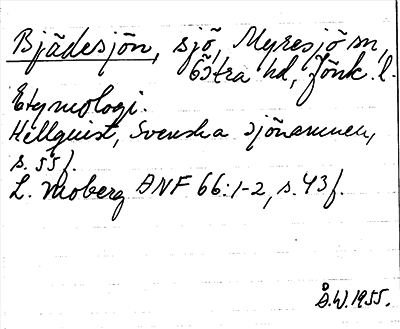 Bjädesjön, sjö, Myresjö sn,
Östra hd, Jönk. l.
Etymologi.
Hellquist, Svenska sjönamnen,
s. 55 f.
L. Moberg ANF 66:1-2, s. 43 f.
Å.W. 1955.